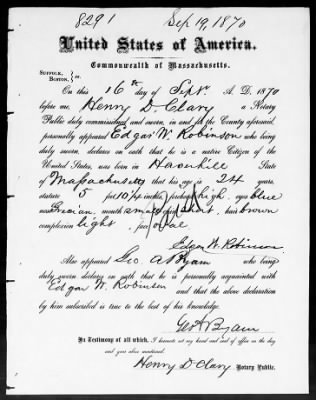 8291 Sep 19, 1870
United States of America.
Commonwealth of Massachusetts.
SUFFOLK,
BOSTON, } ss.
On this 16th day of Sept. A. D. 1870
before me, Henry D. Clary a Notary
Public duly commissioned and sworn, in and for the County aforesaid,
personally appeared Edgar W. Robinson who being
duly sworn, declares on oath that he is a native Citizen of the
United States, was born in Haverhill State
of Massachusetts that his age is 24 years,
stature 5 feet 10½ inches, forehead high, eyes blue
nose Grecian, mouth small, chin short, hair brown
complexion light, face oval
Edgar W. Robinson
Also appeared Geo. A. Byam who being
duly sworn declares on oath that he is personally acquainted with
Edgar W. Robinson and that the above declaration
by him subscribed is true to the best of his knowledge.
Geo A Byam
In Testimony of all which, I hereunto set my hand and seal of office on the day
and year above mentioned.
Henry D. Clary Notary Public.